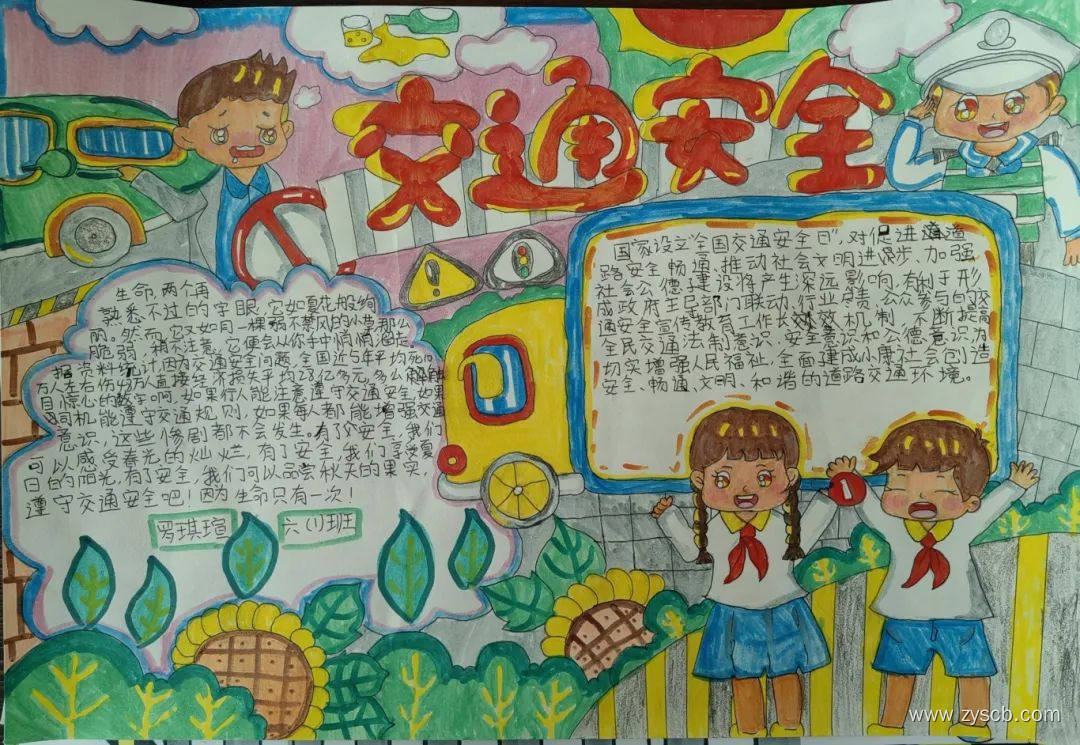 交通安全
国家设立"全国交通安全日",对促进道
路安全畅通,推动社会文明进步、加强
社会公德建设将产生深远影响,有利于形
成政府主导部门联动,行业负责,公众参与的交
通安全宣传教育工作长效机制,不断提高
全民交通法制意识、安全意识和公德意识,为
切实增强人民福祉,全面建成小康社会创造
安全、畅通、文明、和谐的道路交通环境。
生命,两个再
熟悉不过的字眼,它如夏花般绚
丽。然而,它又如同一棵弱不禁风的小草,那么
脆弱,稍不注意,它便会从你手中悄悄溜走
据资料统计,因为交通安全问题,全国近5年平均死亡
万人左右伤 万人直接经济损失平均28亿多元,多么
目惊心的数字啊,如果行人能注意遵守交通安全,如果
司机能遵守交通规则,如果每人都能增强交通
意识,这些惨剧都不会发生。有了交安全,我们
可以感受春光的灿烂,有了安全,我们享受夏
日的阳光,有了安全,我们可以品尝秋天的果实,
遵守交通安全吧!因为生命只有一次!
罗琪瑄 六(1)班
www.zyscb.com